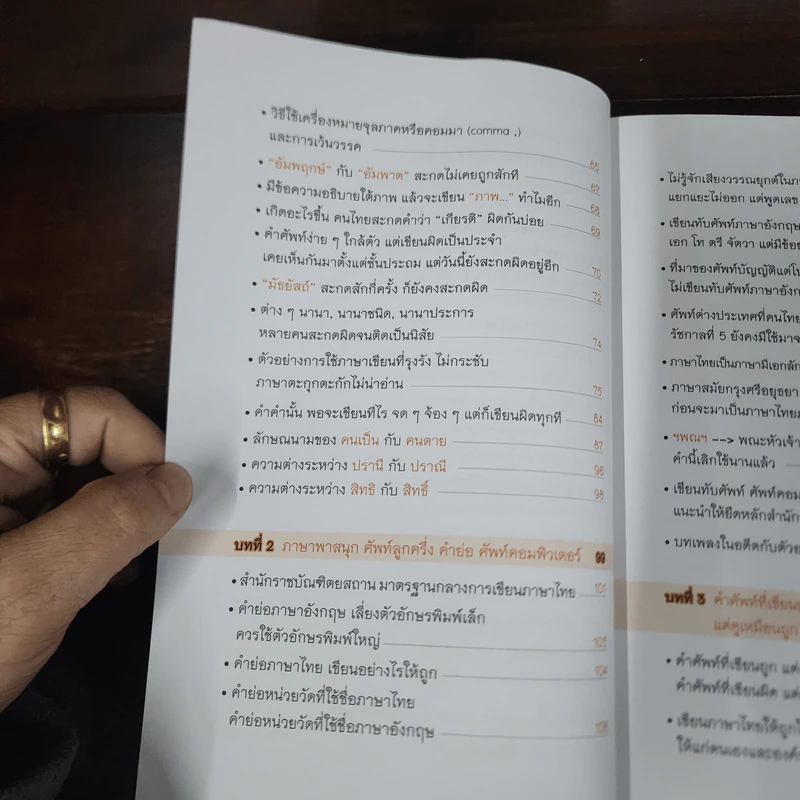 • วิธีใช้เครื่องหมายจุลภาคหรือคอมมา (comma ,)
และการเว้นวรรค 65
• "อัมพฤกษ์" กับ "อัมพาต" สะกดไม่เคยถูกสักที 67
• มีข้อความอธิบายใต้ภาพ แล้วจะเขียน "ภาพ..." ทำไมอีก 68
• เกิดอะไรขึ้น คนไทยสะกดคำว่า "เกียรติ" ผิดกันบ่อย 69
• คำศัพท์ง่าย ๆ ใกล้ตัว แต่เขียนผิดเป็นประจำ
เคยเห็นกันมาตั้งแต่ชั้นประถม แต่วันนี้ยังสะกดผิดอยู่อีก 70
• "มัธยัสถ์" สะกดสักกี่ครั้ง ก็ยังคงสะกดผิด 72
• ต่าง ๆ นานา, นานาชนิด, นานาประการ
หลายคนสะกดผิดจนติดเป็นนิสัย 74
• ตัวอย่างการใช้ภาษาเขียนที่รุงรัง ไม่กระชับ
ภาษาตะกุกตะกักไม่น่าอ่าน 75
• คำคำนั้น พอจะเขียนทีไร จด ๆ จ้อง ๆ แต่ก็เขียนผิดทุกที 84
• ลักษณนามของ คนเป็น กับ คนตาย 87
• ความต่างระหว่าง ปรานี กับ ปราณี 96
• ความต่างระหว่าง สิทธิ กับ สิทธิ์ 98
บทที่ 2 ภาษาพาสนุก ศัพท์ลูกครึ่ง คำย่อ ศัพท์คอมพิวเตอร์ 99
• สำนักราชบัณฑิตยสถาน มาตรฐานกลางการเขียนภาษาไทย 101
• คำย่อภาษาอังกฤษ เลี่ยงตัวอักษรพิมพ์เล็ก
ควรใช้ตัวอักษรพิมพ์ใหญ่ 103
• คำย่อภาษาไทย เขียนอย่างไรให้ถูก 104
• คำย่อหน่วยวัดที่ใช้ชื่อภาษาไทย
คำย่อหน่วยวัดที่ใช้ชื่อภาษาอังกฤษ
• ไม่รู้จักเสียงวรรณยุกต์ใน
แยกแยะไม่ออก แต่พูดเลข
• เขียนทับศัพท์ภาษาอังกฤษ
เอก โท ตรี จัตวา แต่มีข้อย
• ที่มาของศัพท์บัญญัติแต่
ไม่เขียนทับศัพท์ภาษาอังก
• ศัพท์ต่างประเทศที่คนไทย
รัชกาลที่ 5 ยังคงมีใช้มาจ
• ภาษาไทยเป็นภาษามีเอกลัก
• ภาษาสมัยกรุงศรีอยุธยา
ก่อนจะมาเป็นภาษาไทย
• ฯพณฯ --> พณะหัวเจ้า
คำนี้เลิกใช้นานแล้ว
• เขียนทับศัพท์ ศัพท์คอม
แนะนำให้ยึดหลักสำนัก
• บทเพลงในอดีตกับตัวอย
บทที่ 3 คำศัพท์ที่เขียน
แต่ดูเหมือนถูก
• คำศัพท์ที่เขียนถูก แต่
คำศัพท์ที่เขียนผิด แต่
• เขียนภาษาไทยให้ถูก
ให้แก่ตนเองและองค์